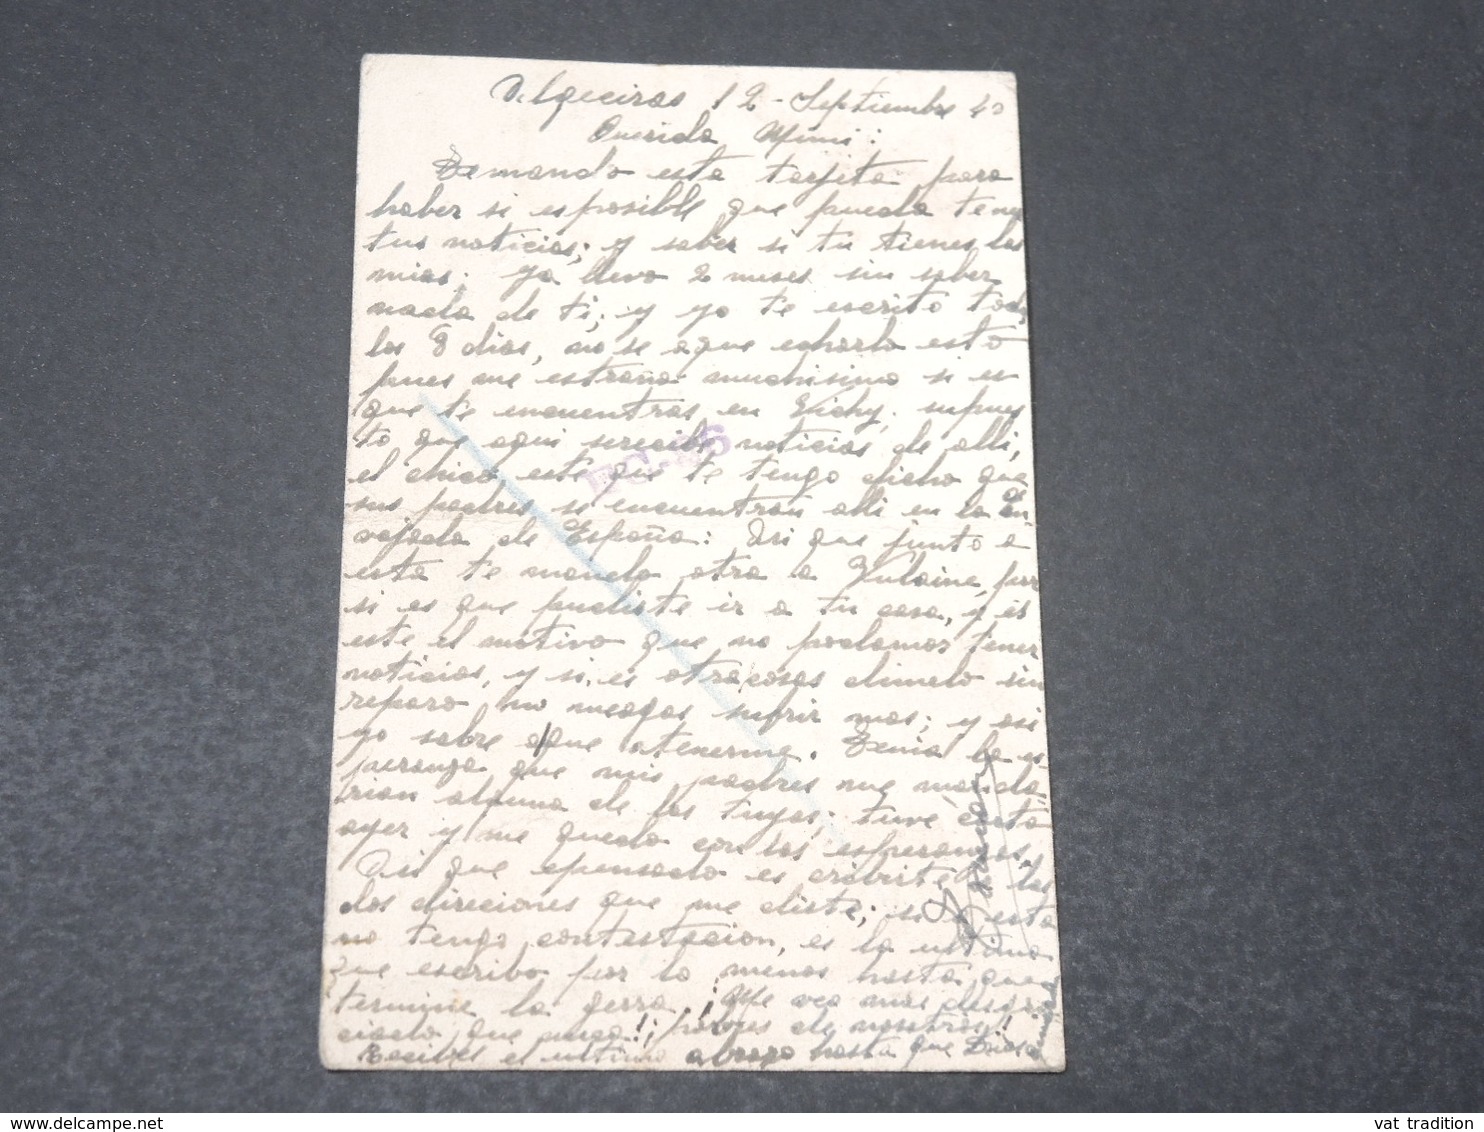 Algeciras 12-Septiembre 40
Querida Mimi:
Demando esta tarjeta para
haber si es posible que pueda tener
tus noticias; y saber si tu tienes las
mias; ya llevo 2 meses sin saber
nada de ti; y yo te escrito todos
los 8 dias, no se a que echarlo esto
pues me estraña muchisimo si es
que te encuentras en Vichy, supues
to que aqui se recibe noticias de alli,
el chico este que te tengo dicho que
sus padres se encuentran alli en la em
vajada de España: Asi que junto a
esta te mando otra a Vulaine, por
si es que pudiste ir a tu casa, y es
este el motivo que no podamos tener
noticias, y si es otra cosas dimelo sin
reparo no meagas sufrir mas; y asi
yo sabre a que atenerme. Tenia la es
peranza que mis padres me manda
rian alguna de las tuyas; tuve carta
ayer y me quedo con las esperanzas.
Asi que e pensado es cribirte a las
dos direciones que me diste; si a esta
no tengo contestacion, es la ultima
que escribo por lo menos hasta que
termine la gerra, ¡Que vea mas desgra
ciado que pueda!; ¡pobres de nosotros!
Recibes el ultimo abrazo hasta que Dios
EC-26
vat tradition